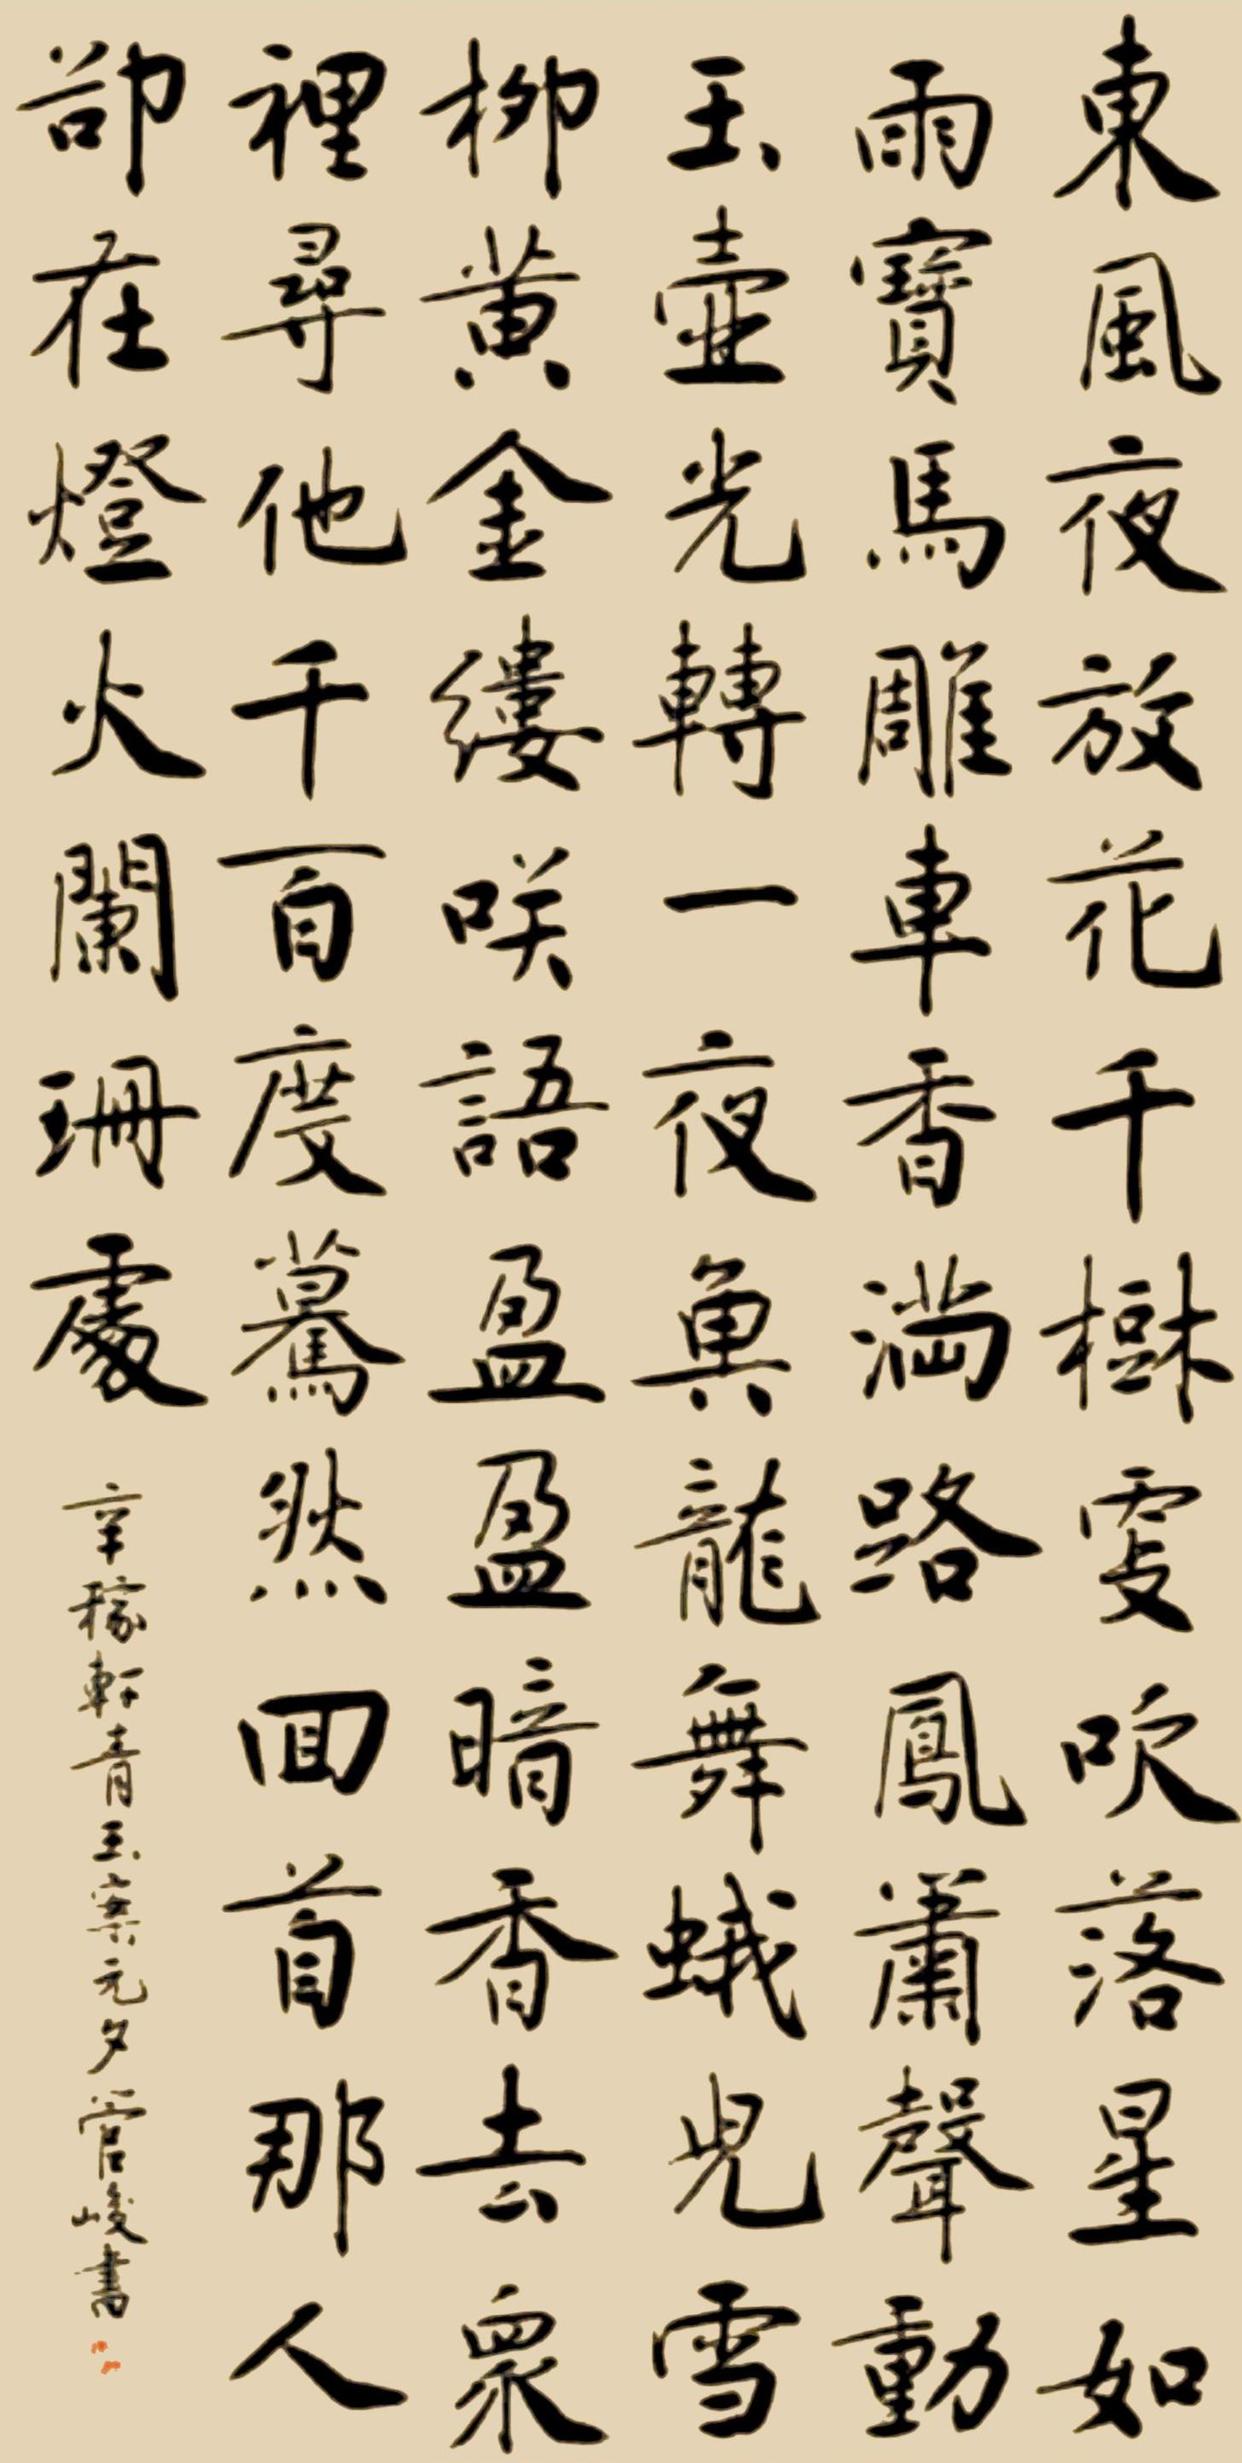 東風夜放花千樹更吹落星如
雨寶馬雕車香滿路鳳簫聲動
玉壺光轉一夜魚龍舞蛾兒雪
柳黃金縷咲語盈盈暗香去眾
裡尋他千百度驀然回首那人
卻在燈火闌珊處
辛稼軒青玉案元夕管峻書